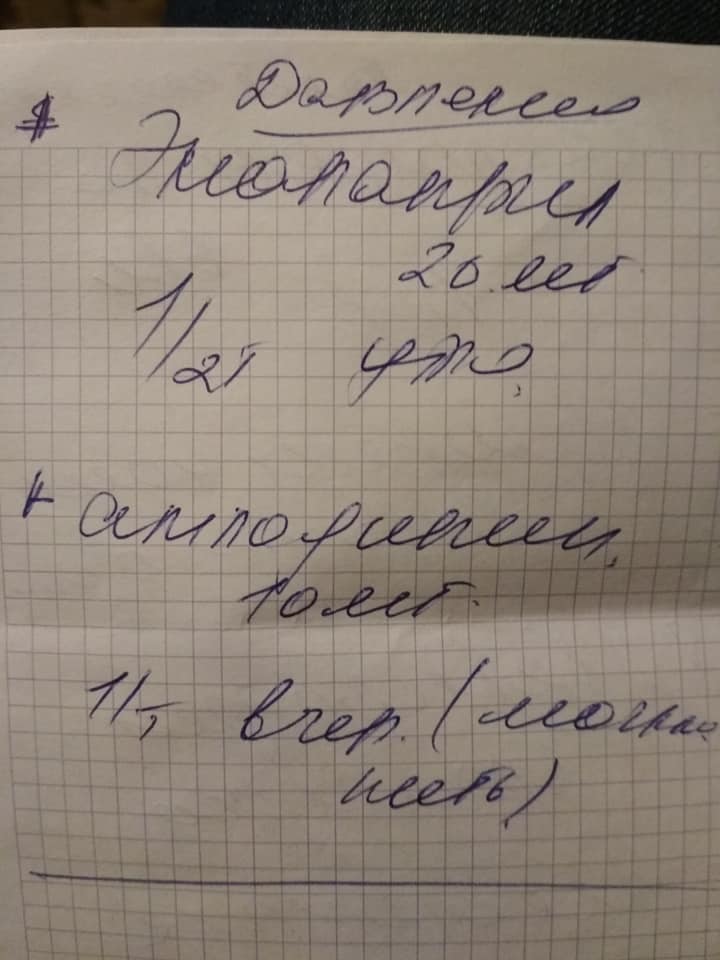 Давление
Эналаприл
20 мг
1/2т утро
амлодипин
10 мг.
1/т вчер. (можно
)